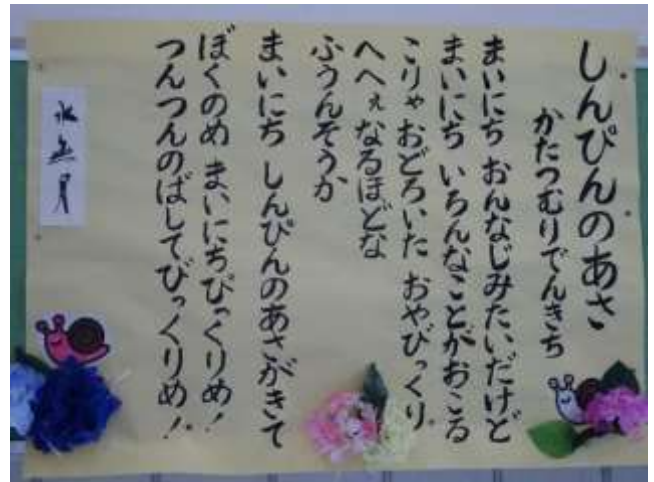 しんぴんのあさ
かたつむりでんきち
まいにち おんなじみたいだけど
まいにち いろんなことがおこる
こりゃ おどろいた おやびっくり
へへぇ なるほどな
ふうんそうか
まいにち しんぴんのあさがきて
ぼくのめ まいにちびっくりめ!
つんつんのばしてびっくりめ!
水無月